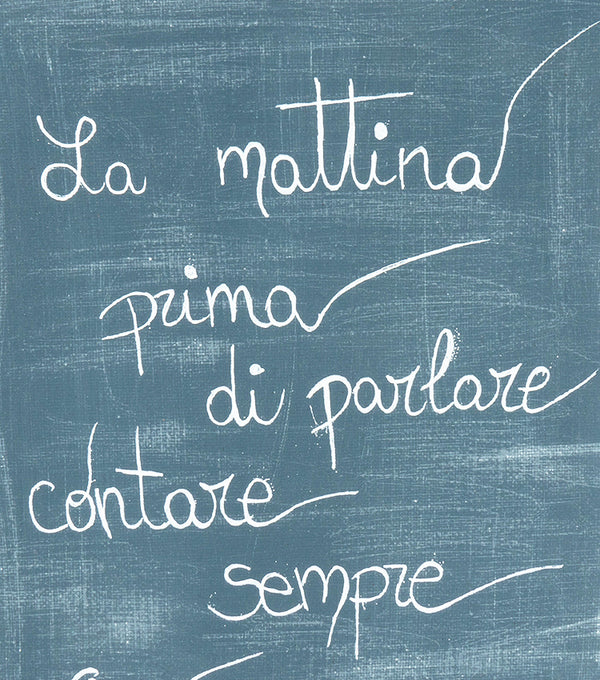 La mattina
prima
di parlare
contare
sempre